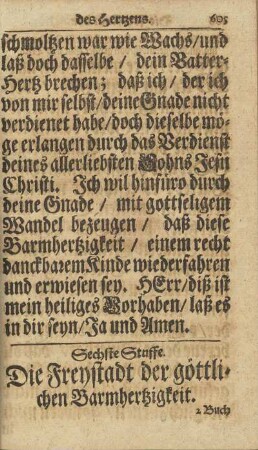 des Hertzens. 605
schmoltzen war wie Wachs/und
laß doch dasselbe / dein Vatter-
Hertz brechen; daß ich / der ich
von mir selbst/deine Gnade nicht
verdienet habe/doch dieselbe mö-
ge erlangen durch das Verdienst
deines allerliebsten Sohns Jesu
Christi. Ich wil hinfüro durch
deine Gnade / mit gottseligem
Wandel bezeugen / daß diese
Barmhertzigkeit / einem recht
danckbarem Kinde wiederfahren
und erwiesen sey. HErr/diß ist
mein heiliges Vorhaben/ laß es
in dir seyn/Ja und Amen.
Sechste Stuffe.
Die Freystadt der göttli-
chen Barmhertzigkeit.
2. Buch